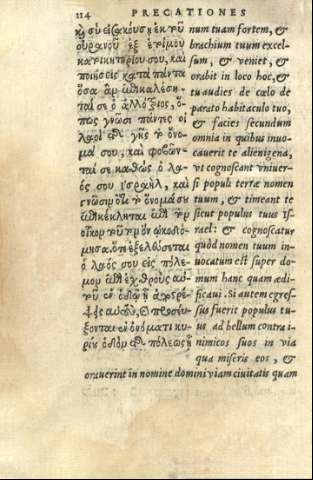 114 PRECATIONES
καὶ σὺ εἰσακούσῃ ἐκ τοῦ
οὐρανοῦ ἐξ ἑτοίμου
κατοικητηρίου σου, καὶ
ποιήσεις κατὰ πάντα
ὅσα ἂν ἐπικαλέση-
ταί σε ὁ ἀλλότριος, ὅ-
πως γνῶσι πάντες οἱ
λαοὶ τῆς γῆς τὸ ὄνο-
μά σου, καὶ φοβῶν-
ταί σε καθὼς ὁ λα-
ός σου Ἰσραὴλ, καὶ
γνῶσιν ὅτι τὸ ὄνομά σου
ἐπικέκληται ἐπὶ τὸν
οἶκον τοῦτον ὃν ᾠκοδό-
μησα. ὅτι ἐξελεύσεται
ὁ λαός σου εἰς πόλε-
μον ἐπὶ ἐχθροὺς αὐ-
τοῦ ἐν ὁδῷ ᾗ ἀποστρέ-
ψῃς αὐτοὺς, καὶ προσεύ-
ξονται ἐν ὀνόματι κυ-
ρίου ὁδὸν τῆς πόλεως ἣν
num tuam fortem, &
brachium tuum excel-
sum, & veniet, &
orabit in loco hoc, &
tu audies de cælo de
parato habitaculo tuo,
& facies secundum
omnia in quibus inuo-
cauerit te alienigena,
vt cognoscant vniuer-
si populi terræ nomen
tuum, & timeant te
sicut populus tuus is-
rael: & cognoscatur
quòd nomen tuum in-
uocatum est super do-
mum hanc quam ædi-
ficaui. Si autem egres-
sus fuerit populus tu-
us ad bellum contra i-
nimicos suos in via
qua miseris eos, &
orauerint in nomine domini viam ciuitatis quam